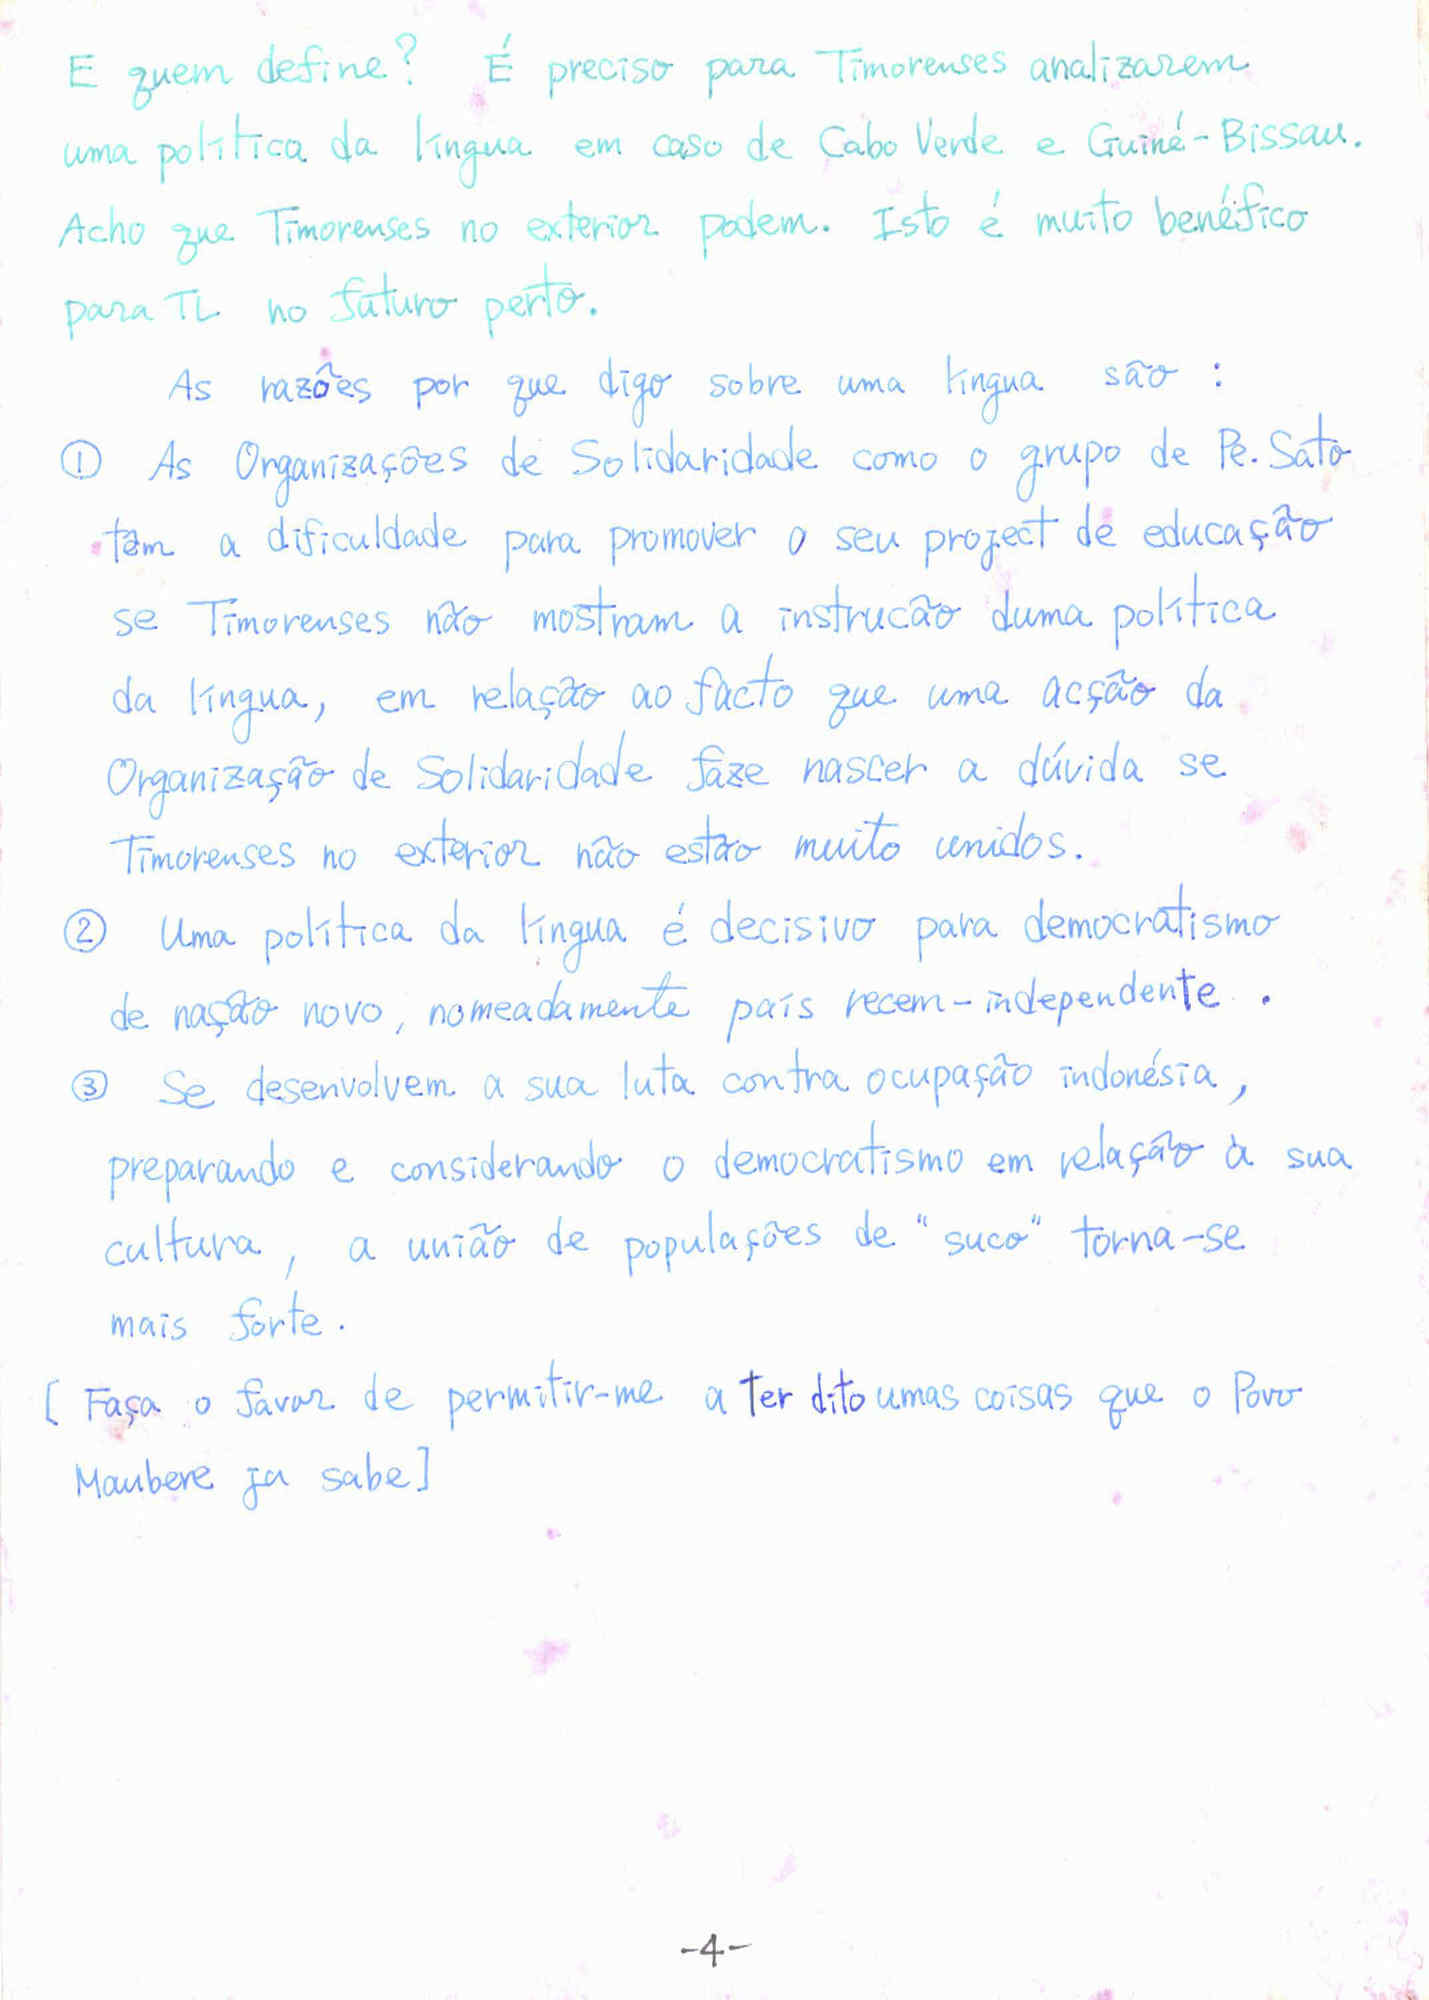 E quem define? É preciso para Timorenses analizarem
uma política da língua em caso de Cabo Verde e Guiné-Bissau.
Acho que Timorenses no exterior podem. Isto é muito benéfico
para TL no futuro perto.
As razões por que digo sobre uma língua são :
① As Organizações de Solidaridade como o grupo de Pe. Sato
têm a dificuldade para promover o seu project de educação
se Timorenses não mostram a instrucão duma política
da língua, em relação ao facto que uma acção da
Organização de Solidaridade faze nascer a dúvida se
Timorenses no exterior não estão muito unidos.
② Uma política da língua é decisivo para democratismo
de nação novo, nomeadamente país recem-independente.
③ Se desenvolvem a sua luta contra ocupação indonésia,
preparando e considerando o democratismo em relação à sua
cultura, a união de populações de "suco" torna-se
mais forte.
[Faça o favor de permitir-me a ter dito umas coisas que o Povo
Maubere ja sabe]
-4-